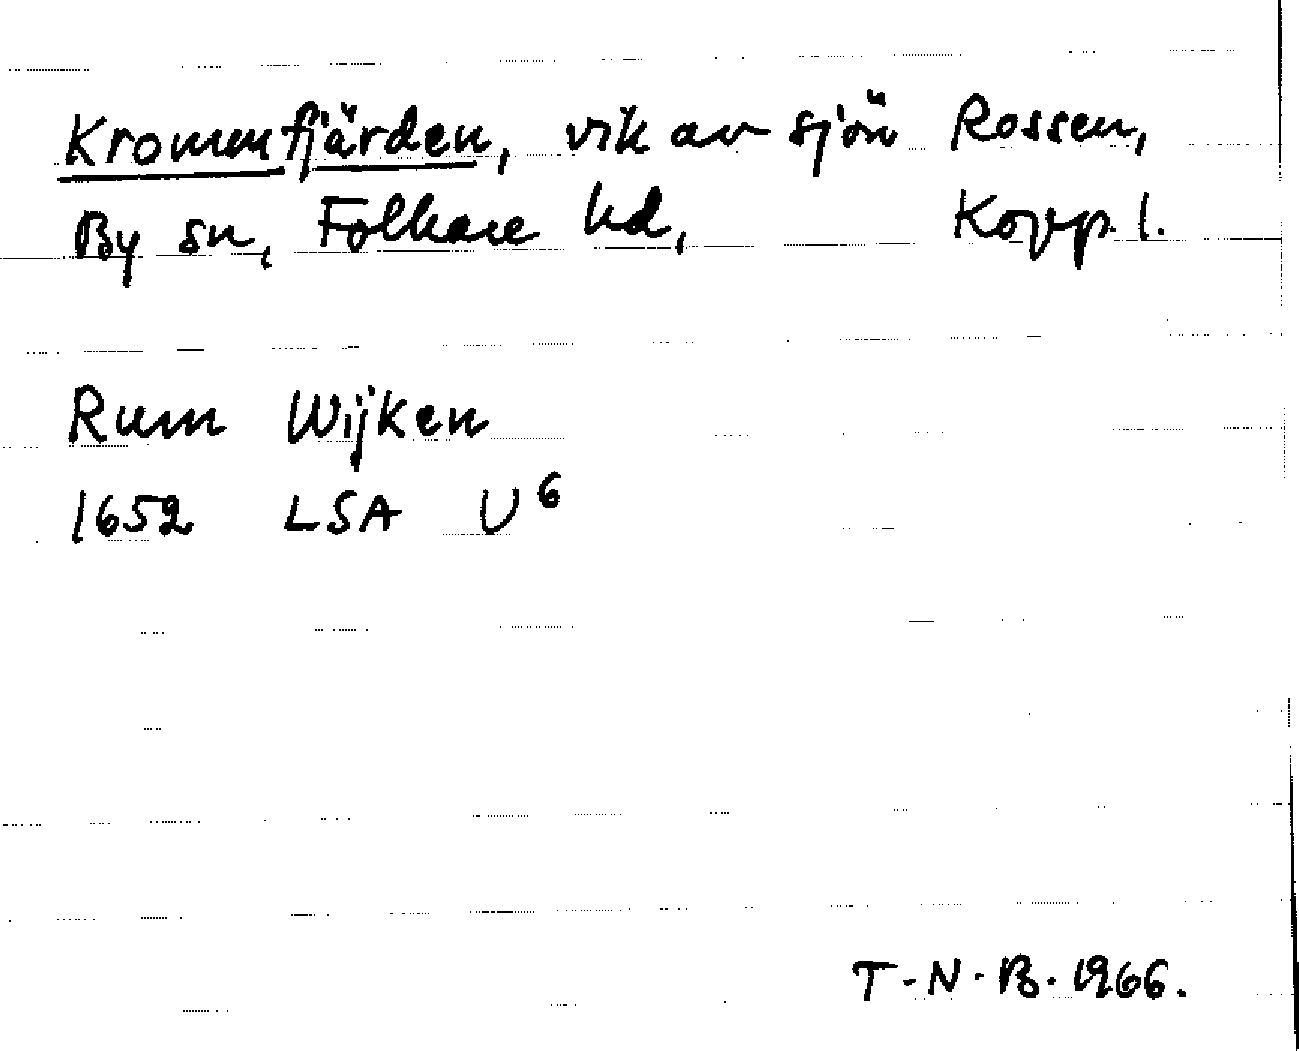 Krommfjärden, vik av sjön Rossen,
By sn, Folkare hd, Kopp. l.
Rum Wijken
1652 LSA U⁶
T-N-B. 1966.